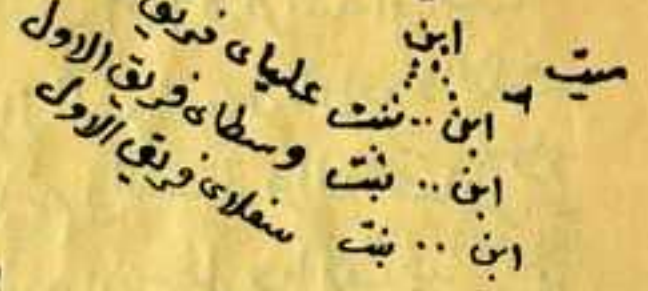 ميت
ابن
ابن .. بنت علياى فريق
ابن .. بنت وسطاى فريق الاول
ابن .. بنت سفلاى فريق الاول